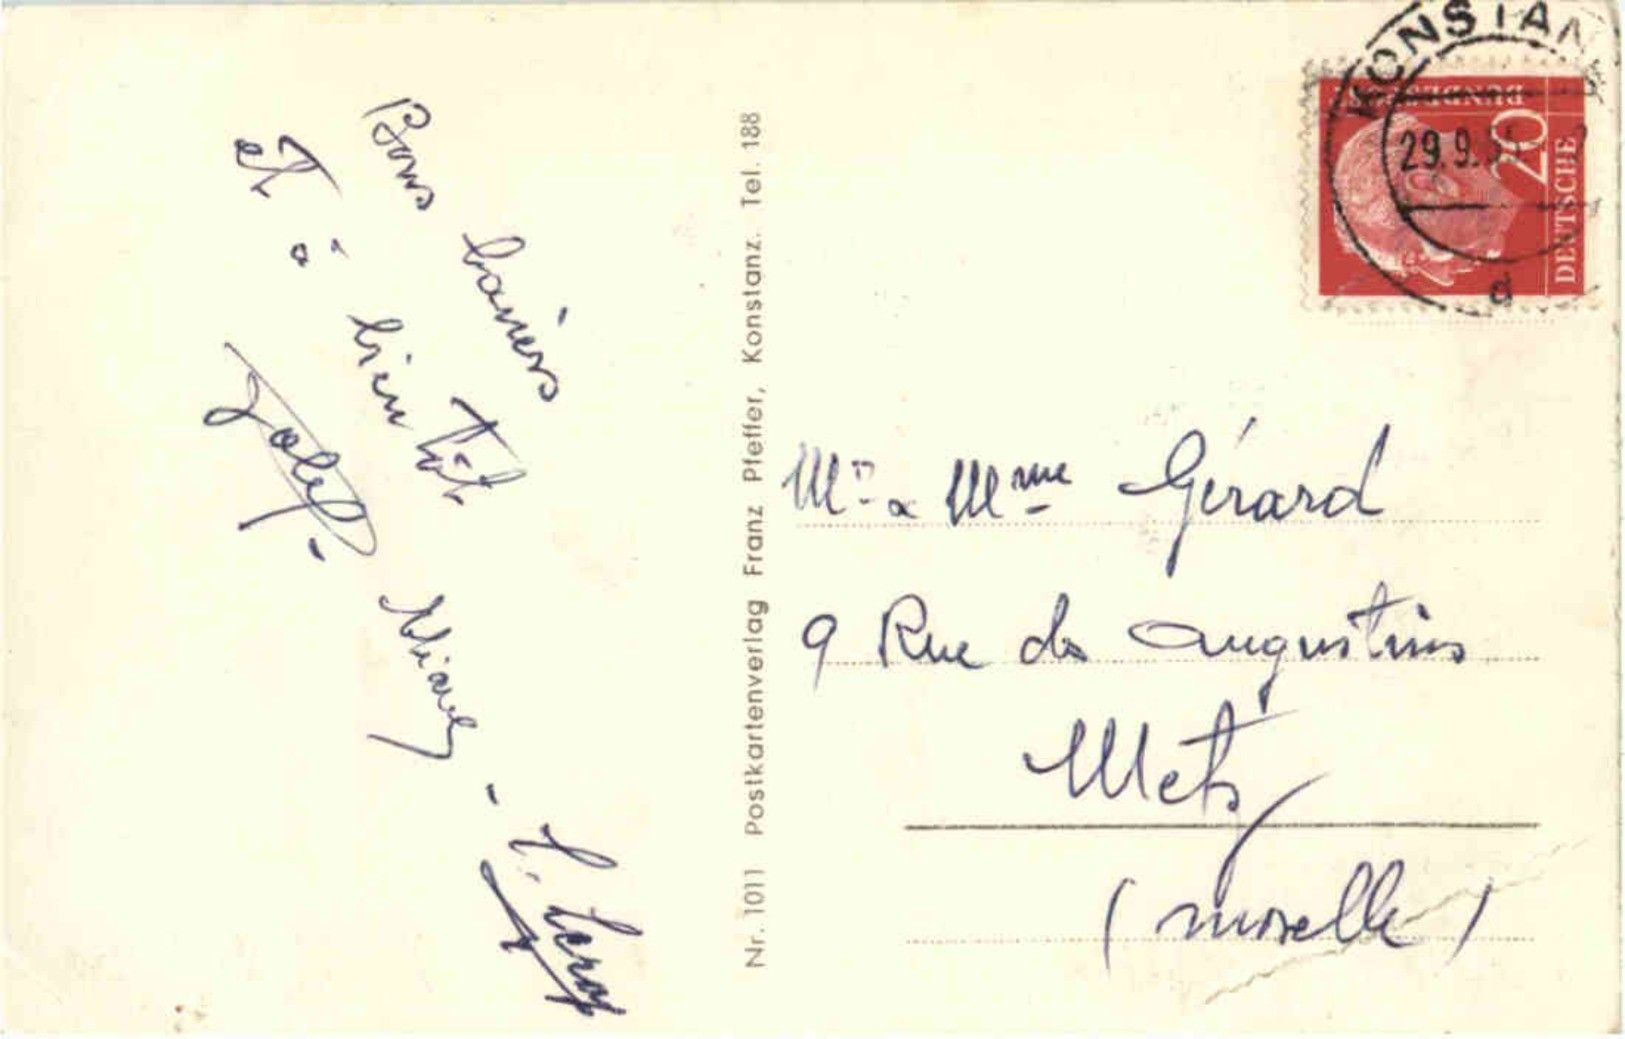 Bons baisers
et à bientôt
Nr. 1011 Postkartenverlag Franz Pfeffer, Konstanz. Tel. 188
KONSTAN
29.9.5
d
20
DEUTSCHE
BUNDESPOST
Mr & Mme Gérard
9 Rue des Augustins
Metz
(Moselle)